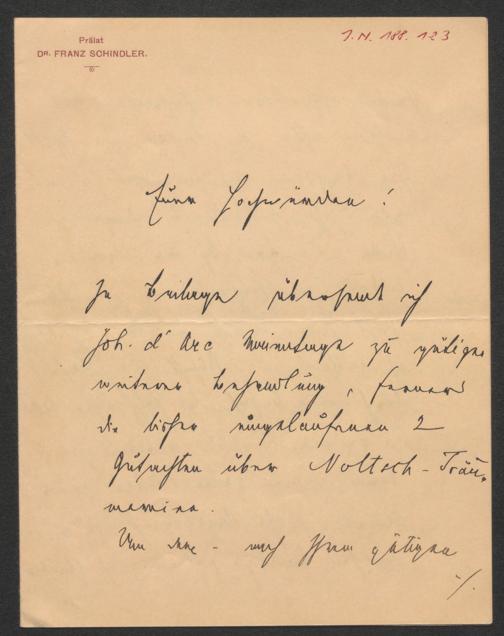 Prälat
DR. FRANZ SCHINDLER.
I.N. 188.123
Euer Hochwürden!
In Beilage übersendet ich
Joh. d'Arc zu gütiger
weiterer Behandlung, ferner
die bisher eingelaufenen 2
Gutachten über Noltsch-Träu-
mereien.
Um - nach Ihrem gütigen
./.